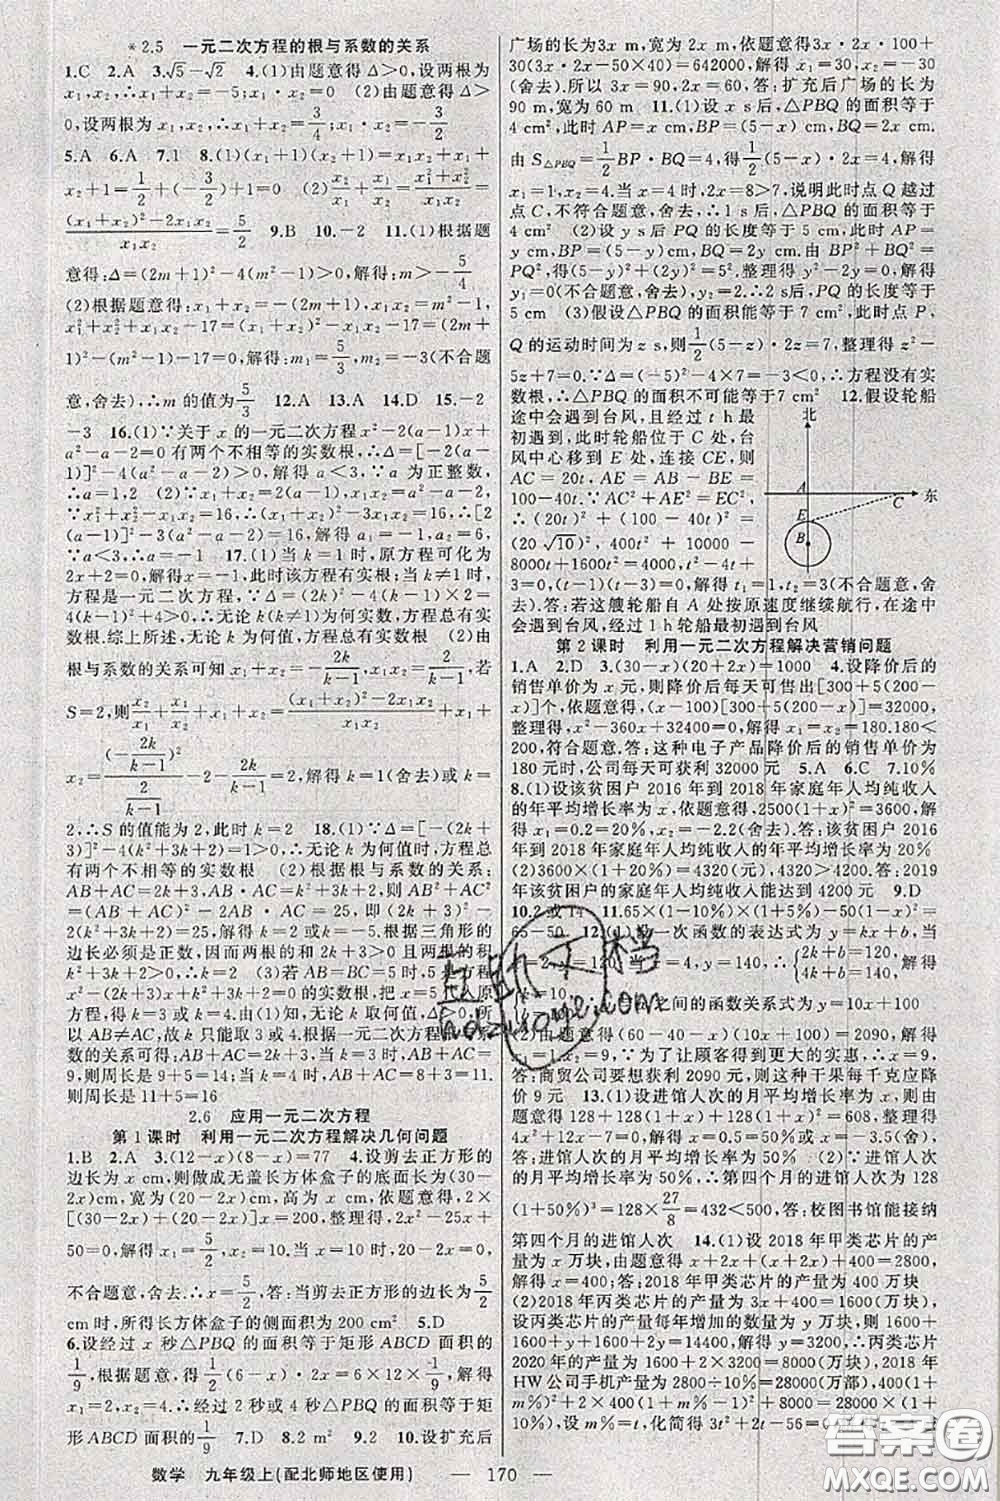 *2.5 一元二次方程的根与系数的关系
1.C 2.A 3.√5−√2 4.(1)由题意得Δ>0,设两根为
x₁,x₂,∴x₁+x₂=−5;x₁·x₂=0 (2)由题意得Δ>
0,设两根为x₁,x₂,∴x₁+x₂=3/4;x₁·x₂=−3/2
5.A 6.A 7.1 8.(1)(x₁+1)(x₂+1)=x₁x₂+x₁+
x₂+1=1/2+(−3/2)+1=0 (2)x₂/x₁+x₁/x₂=(x₁²+x₂²)/(x₁x₂)=
((x₁+x₂)²−2x₁x₂)/(x₁x₂)=5/2 9.B 10.−2 11.(1)根据题
意得:Δ=(2m+1)²−4(m²−1)>0,解得:m>−5/4
(2)根据题意得:x₁+x₂=−(2m+1),x₁x₂=m²−1,
x₁²+x₂²+x₁x₂−17=(x₁+x₂)²−x₁x₂−17=(2m+
1)²−(m²−1)−17=0,解得:m₁=5/3,m₂=−3(不合题
意,舍去),∴m的值为5/3 12.A 13.A 14.D 15.−2
−3 16.(1)∵关于x的一元二次方程x²−2(a−1)x+
a²−a−2=0有两个不相等的实数根,∴Δ=[−2(a−
1)]²−4(a²−a−2)>0,解得a<3,∵a为正整数,
∴a=1,2 (2)∵x₁+x₂=2(a−1),x₁x₂=a²−a−2,
∵x₁²+x₂²−x₁x₂=16,∴(x₁+x₂)²−3x₁x₂=16,∴[2
(a−1)]²−3(a²−a−2)=16,解得a₁=−1,a₂=6,
∵a<3,∴a=−1 17.(1)当k=1时,原方程可化为
2x+2=0,解得x=−1,此时该方程有实根;当k≠1时,
方程是一元二次方程,∵Δ=(2k)²−4(k−1)×2=
4(k−1)²+4>0,∴无论k(k≠1)为何实数,方程总有实
数根.综上所述,无论k为何值,方程总有实数根 (2)由
根与系数的关系可知x₁+x₂=−2k/(k−1),x₁x₂=2/(k−1),若
S=2,则x₂/x₁+x₁/x₂+x₁+x₂=((x₁+x₂)²−2x₁x₂)/(x₁x₂)+x₁+
x₂=(−2k/(k−1))²/(2/(k−1))−2−2k/(k−1)=2,解得k=1(舍去)或k=
2,∴S的值能为2,此时k=2 18.(1)∵Δ=[−(2k+
3)]²−4(k²+3k+2)=1>0,∴无论k为何值时,方程总
有两个不相等的实数根 (2)根据根与系数的关系:
AB+AC=2k+3,AB·AC=k²+3k+2,则AB²+AC²
=(AB+AC)²−2AB·AC=25,即(2k+3)²−
2(k²+3k+2)=25,解得k=2或k=−5,根据三角形的
边长必须是正数,因而两根的和2k+3>0且两根的积
k²+3k+2>0,∴k=2 (3)若AB=BC=5时,5是方程
x²−(2k+3)x+k²+3k+2=0的实数根,把x=5代入原
方程,得k=3或k=4.由(1)知,无论k取何值,Δ>0,所
以AB≠AC,故k只能取3或4.根据一元二次方程的根与系
数的关系可得:AB+AC=2k+3,当k=3时,AB+AC=
9,则周长是9+5=14;当k=4时,AB+AC=8+3=11.
则周长是11+5=16
2.6 应用一元二次方程
第1课时 利用一元二次方程解决几何问题
1.B 2.A 3.(12−x)(8−x)=77 4.设剪去正方形的
边长为x cm,则做成无盖长方体盒子的底面长为(30−
2x)cm,宽为(20−2x)cm,高为x cm,依题意得,2×
[(30−2x)+(20−2x)]x=200,整理得,2x²−25x+
50=0,解得x₁=5/2,x₂=10.当x=10时,20−2x=0,
不合题意,舍去;∴x=5/2.答:剪去正方形的边长为5/2
cm时,所得长方体盒子的侧面积为200 cm² 5.D
6.设经过x秒△PBQ的面积等于矩形ABCD面积的
1/9,根据题意得,1/2(6−x)×2x=1/9×6×12,解得
x₁=2,x₂=4.∴经过2秒或4秒△PBQ的面积等于矩
形ABCD面积的1/9 7.D 8.2 m² 9.2 10.设扩充后
广场的长为3x m,宽为2x m,依题意得3x·2x·100+
30(3x·2x−50×40)=642000,解得x₁=30,x₂=−30
(舍去).所以3x=90,2x=60,答:扩充后广场的长为
90 m,宽为60 m 11.(1)设x s后,△PBQ的面积等于
4 cm²,此时AP=x cm,BP=(5−x) cm,BQ=2x cm.
由S△PBQ=1/2BP·BQ=4,得1/2(5−x)·2x=4,解得
x₁=1,x₂=4.当x=4时,2x=8>7,说明此时点Q越过
点C,不符合题意,舍去,∴1 s后,△PBQ的面积等于
4 cm² (2)设y s后PQ的长度等于5 cm,此时AP=
y cm,BP=(5−y)cm,BQ=2y cm.由BP²+BQ²=
PQ²,得(5−y)²+(2y)²=5².整理得y²−2y=0,解得
y₁=0(不合题意,舍去),y₂=2.∴2 s后,PQ的长度等于
5 cm (3)假设△PBQ的面积能等于7 cm²,此时点P、
Q的运动时间为z s,则1/2(5−z)·2z=7,整理得z²−
5z+7=0.∵Δ=(−5)²−4×7=−3<0,∴方程没有实
数根,∴△PBQ的面积不可能等于7 cm² 12.假设轮船
途中会遇到台风,且经过t h最
初遇到,此时轮船位于C处,台
风中心移到E处,连接CE,则
AC=20t,AE=AB−BE=
100−40t.∵AC²+AE²=EC²,
∴(20t)²+(100−40t)²=
(20√10)²,400t²+10000−
8000t+1600t²=4000,t²−4t+
3=0,(t−1)(t−3)=0,解得t₁=1,t₂=3(不合题意,舍
去).答:若这艘轮船自A处按原速度继续航行,在途中
会遇到台风,经过1 h轮船最初遇到台风
北
东
A
C
E
B
第2课时 利用一元二次方程解决营销问题
1.A 2.D 3.(30−x)(20+2x)=1000 4.设降价后的
销售单价为x元,则降价后每天可售出[300+5(200−
x)]个,依题意得,(x−100)[300+5(200−x)]=32000,
整理得,x²−360x+32400=0,解得x₁=x₂=180.180<
200,符合题意.答:这种电子产品降价后的销售单价为
180元时,公司每天可获利32000元 5.A 6.C 7.10%
8.(1)设该贫困户2016年到2018年家庭年人均纯收入
的年平均增长率为x,依题意得,2500(1+x)²=3600,
解得x₁=0.2=20%,x₂=−2.2(舍去).答:该贫困户2016
年到2018年家庭年人均纯收入的年平均增长率为20%
(2)3600×(1+20%)=4320>4200,答:2019
年该贫困户的家庭年人均纯收入能达到4200元 9.D
10.2或14 11.65×(1−10%)×(1+5%)−50(1−x)²=
65−50 12.(1)设一次函数的表达式为y=kx+b,当
x=2,y=120;当x=4,y=140,∴{2k+b=120, 4k+b=140,
之间的函数关系式为y=10x+100
(2)由题意得(60−40−x)(10x+100)=2090,解得
x₁=1,x₂=9,∵为了让顾客得到更大的实惠,∴x=9.
答:商贸公司要想获利2090元,则这种干果每千克应降
价9元 13.(1)设进馆人次的月平均增长率为x,则由
题意得128+128(1+x)+128(1+x)²=608,整理得
4x²+12x−7=0,解得x=0.5=50%或x=−3.5(舍去).
答:进馆人次的月平均增长率为50% (2)∵进馆人次
的月平均增长率为50%,∴第四个月的进馆人次为128
(1+50%)³=128×27/8=432<500,答:校图书馆能接纳
第四个月的进馆人次 14.(1)设2018年甲类芯片的产
量为x万块,由题意得x+2x+(x+2x)+400=2800,
解得x=400;答:2018年甲类芯片的产量为400万块
(2)2018年丙类芯片的产量为3x+400=1600(万块),
设丙类芯片的产量每年增加的数量为y万块,则1600+
1600+y+1600+2y=14400,解得y=3200,∴丙类芯片
2020年的产量为1600+2×3200=8000(万块),2018年
HW公司手机产量为2800÷10%=28000(万部),
设m%=t,化简得3t²+2t−56=
数学 九年级上(配北师地区使用) — 170 —
答案圈
MXQE.COM